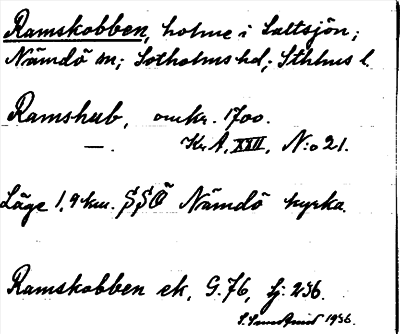 Ramskobben, holme i Saltsjön;
Nämdö sn; Sotholms hd; Sthlms l.
Ramskub, omkr. 1700.
—. Kr A, XXII, N:o 21.
Läge 1,9 km. SSÖ Nämdö kyrka.
Ramskobben ek, G. 76, Lj. 236.
1936.